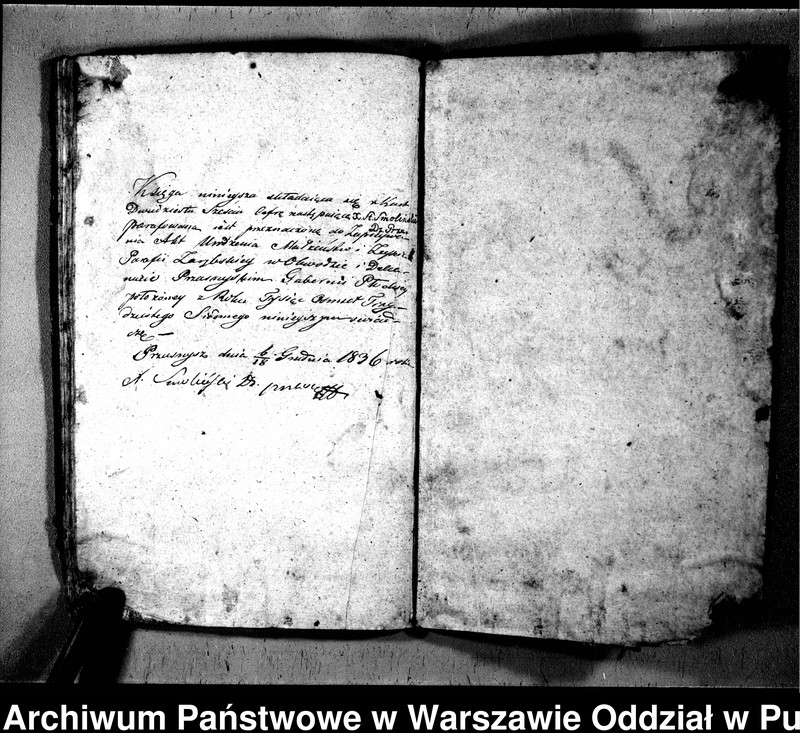 Księga niniejsza składaiąca się z Kart
Dwudziestu Sześciu Cyfrą następuiącą X. A. Smoliński
Dz. Prza:
parafowana iest przeznaczona do Zapisywa-
nia Akt Urodzenia Małżeństw i Zeyść
Parafii w Obwodzie i Deka-
nacie Przasnyskim Gubernii Płockiey
położoney z Roku Tysiąc Ośmset Trzy-
dziestego Siódmego niniejszym świad-
czę. —
Przasnysz dnia 6/18 Grudnia 1836 roku
A. Smoliński Dz.
Archiwum Państwowe w Warszawie Oddział w Pu